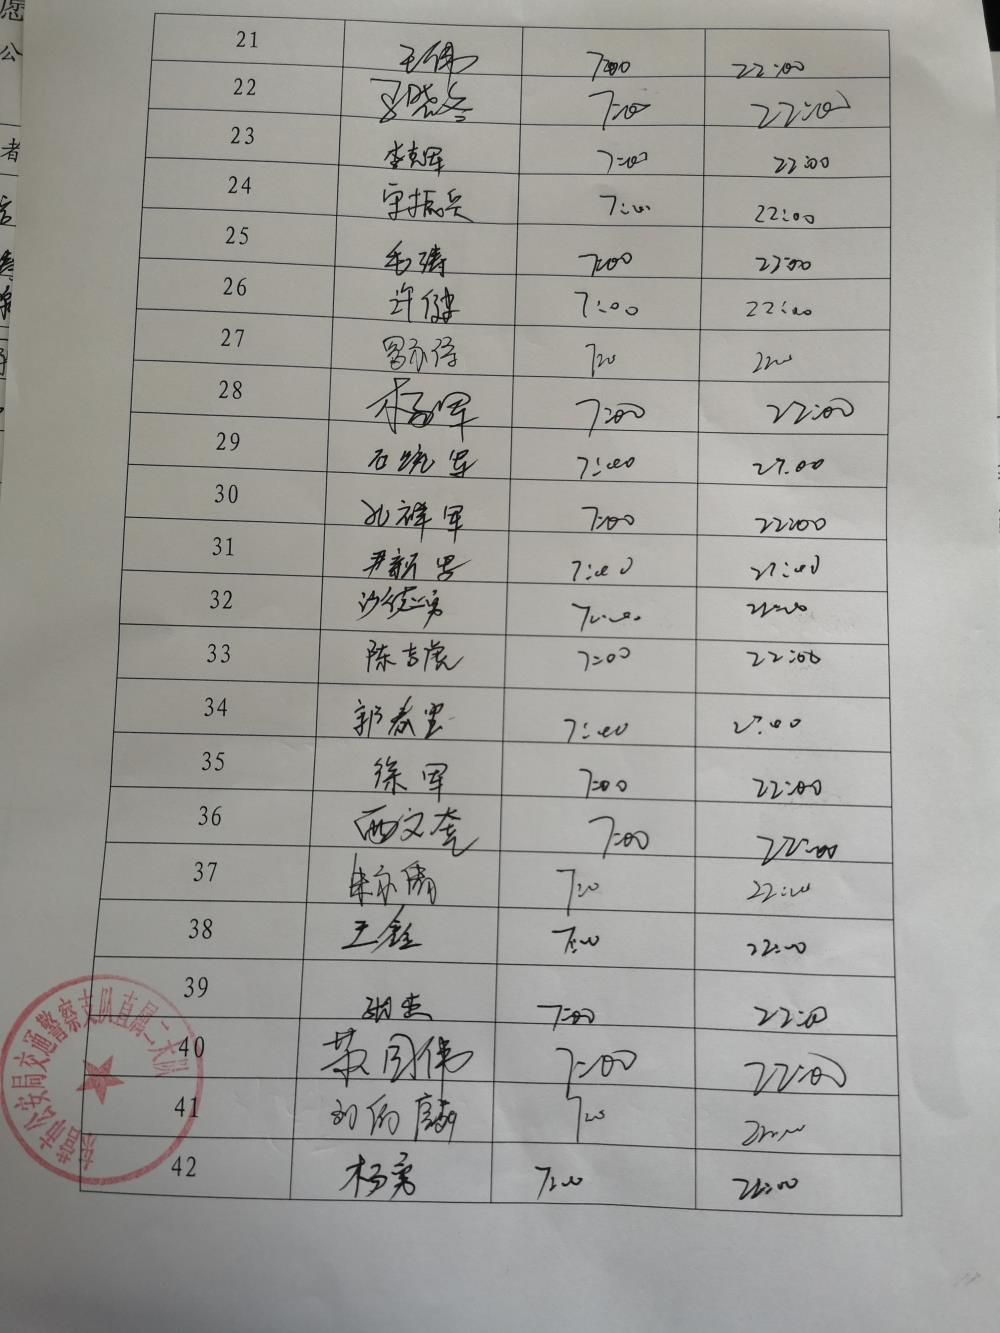 21 王伟 7:00 22:00
22 7:00 22:00
23 李克军 7:00 22:00
24 7:00 22:00
25 毛涛 7:00 22:00
26 许健 7:00 22:00
27 7:00 22:00
28 杨军 7:00 22:00
29 石 军 7:00 22:00
30 孔祥军 7:00 22:00
31 尹新 7:00 22:00
32 沙德勇 7:00 22:00
33 陈吉虎 7:00 22:00
34 郭春 7:00 22:00
35 徐军 7:00 22:00
36 西文奎 7:00 22:00
37 朱 7:00 22:00
38 王鑫 7:00 22:00
39 胡杰 7:00 22:00
40 伟 7:00 22:00
41 刘 麟 7:00 22:00
42 杨勇 7:00 22:00
市公安局交通警察支队直属二大队
公
者